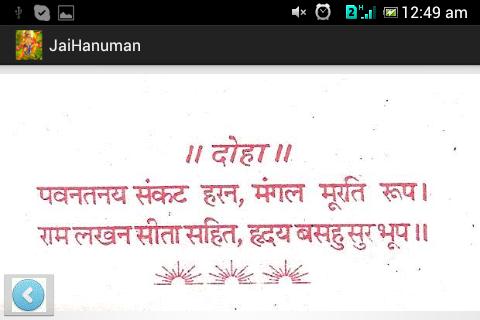 12:49 am
JaiHanuman
॥ दोहा ॥
पवनतनय संकट हरन, मंगल मूरति रूप।
राम लखन सीता सहित, हृदय बसहु सुर भूप॥